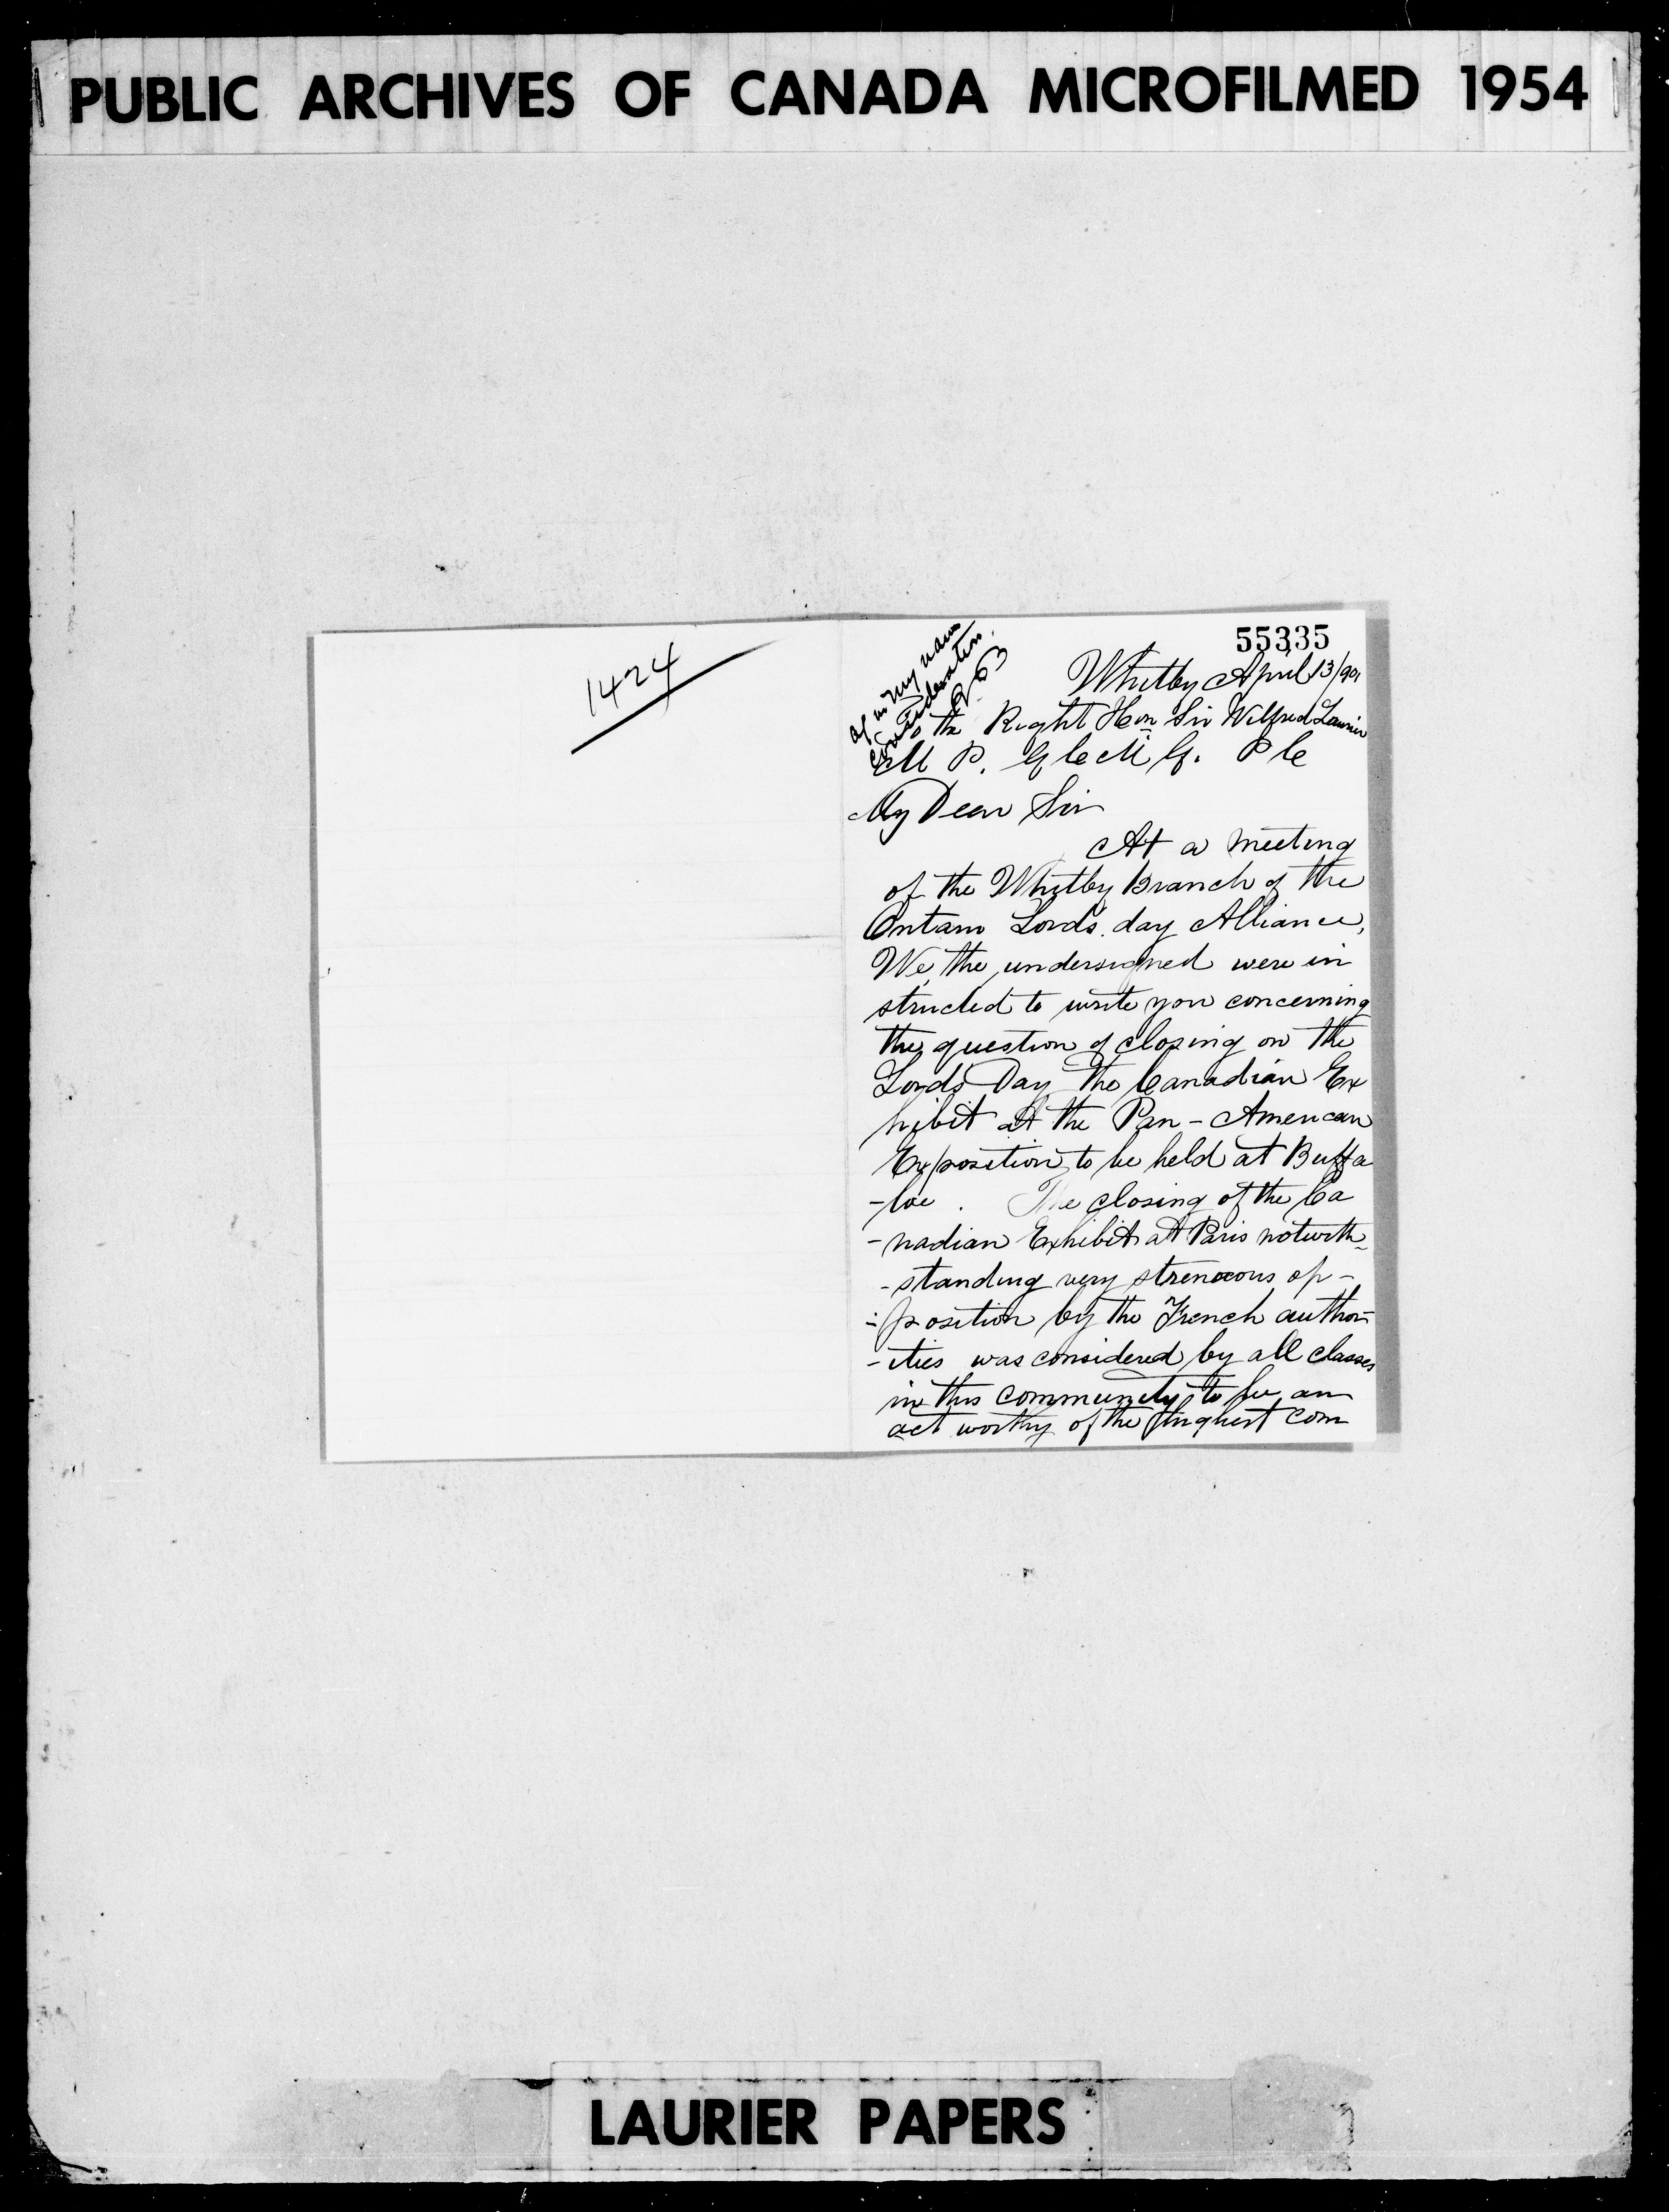 PUBLIC ARCHIVES OF CANADA MICROFILMED 1954
1424
55335
Whitby April 13/901
To the Right Hon Sir Wilfred Laurier
M P. G C M G. P C
My Dear Sir
At a meeting
of the Whitby Branch of the
Ontario Lord's day Alliance,
We, the undersigned were in
structed to write you concerning
the question of closing on the
Lords Day the Canadian Ex
hibit at the Pan-American
Exposition to be held at Buffa
-loe. The closing of the Ca
-nadian Exhibit at Paris notwith-
-standing very strenuous op-
-position by the French author-
-ities was considered by all classes
in this community to be an
act worthy of the highest com
LAURIER PAPERS